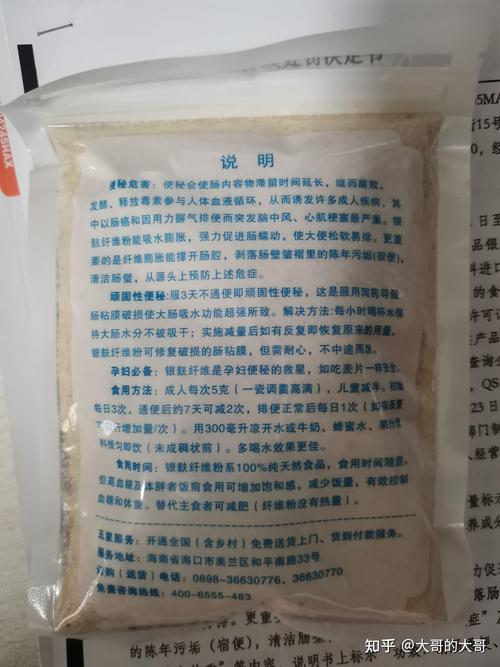 说明
便秘危害：便秘会使肠内容物滞留时间延长，继而腐败、
发酵、释放毒素参与人体血液循环，从而诱发许多成人疾病，其
中以肠癌和因用力摒气排便而突发脑中风、心肌梗塞最严重。银
麸纤维粉能吸水膨胀，强力促进肠蠕动，使大便松软易排。更重
要的是纤维膨胀能撑开肠腔，剥落肠壁皱褶里的陈年污垢(宿便)，
清洁肠壁，从源头上预防上述危症。
顽固性便秘：服3天不通便即顽固性便秘，这是服用泻药导致
肠粘膜破损使大肠吸水功能超强所致。解决方法：每小时喝杯水保
持大肠水分不被吸干；实施减量后如有反复即恢复原来的用量。
银麸纤维粉可修复破损的肠粘膜，但需耐心，不中途而医。
孕妇必备：银麸纤维是孕妇便秘的救星，如吃麦片一样安全。
食用方法：成人每次5克（一瓷调羹高满），儿童减半。初始
每日3次，通便后约7天可减2次，排便正常后每日1次（如有反复
可 新增加量/次）。用300毫升凉开水或牛奶、蜂蜜水、果汁饮
料搅匀即饮（未成稠状前）。多喝水效果更佳。
食用时间：银麸纤维粉系100%纯天然食品，食用时间随意。
但高血糖及 体胖者饭前食用可增加饱和感，减少饭量，有效控制
血糖和体重。替代主食者可减肥（纤维粉没有热量）。
五星服务：开通全国（含乡村）免费送货上门、货到付款服务。
服务地址：海南省海口市美兰区和平南路33号
订购（送货）电话：0898-36630776、36630770
免费咨询热线：400-6555-483
YASHAX
罚决定书
5MA
街15号
0，经
品银
料进口
许可
产品
查询企
QS
23日
部门制
人经营
量标示
养成分
力促进
落肠
症”
标示
更重
的陈年污垢（宿便），清洁肠壁
等内容，说明书上标示
知乎 @大哥的大哥